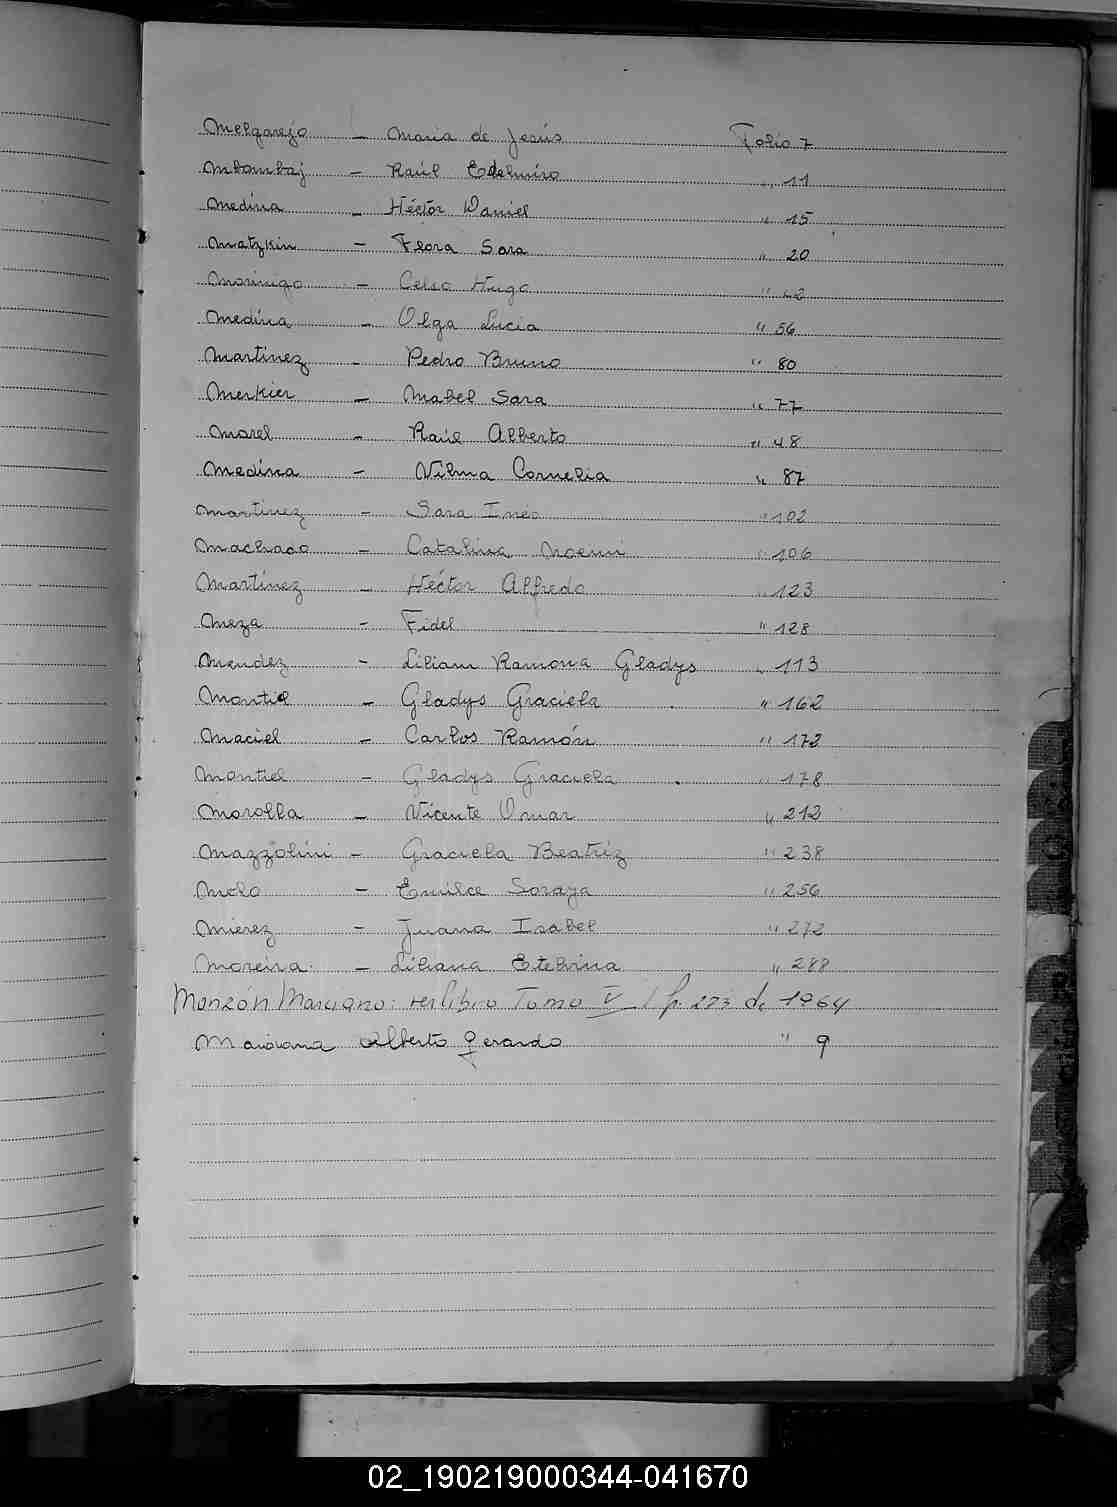 Melgarejo - Maria de Jesús Folio 7
Mbombaj - Raúl Edelmiro " 11
Medina - Héctor Daniel " 15
Matzkin - Flora Sara " 20
Morinigo - Celso Hugo " 42
Medina - Olga Lucia " 56
Martinez - Pedro Bruno " 80
Merkier - Mabel Sara " 77
Morel - Raúl Alberto " 48
Medina - Vilma Cornelia " 87
Martinez - Sara Inés " 102
Machado - Catalina Noemi " 106
Martínez - Héctor Alfredo " 123
Meza - Fidel " 128
Mendez - Liliam Ramona Gladys " 113
Montiel - Gladys Graciela " 162
Maciel - Carlos Ramón " 172
Montiel - Gladys Graciela " 178
Morolla - Vicente Omar " 212
Mazzolini - Graciela Beatriz " 238
Melo - Emilce Soraya " 256
Mierez - Juana Isabel " 272
Moreira - Liliana Etelvina " 288
Monzón Marciano: ver libro Tomo V f. 273 de 1964
Maidana Alberto Gerardo " 9
02_190219000344-041670